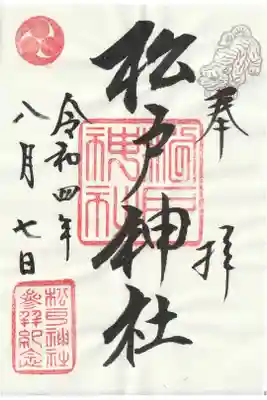 奉拝
松戸神社
令和四年
八月七日
松戸神社
松戸神社
参拝記念